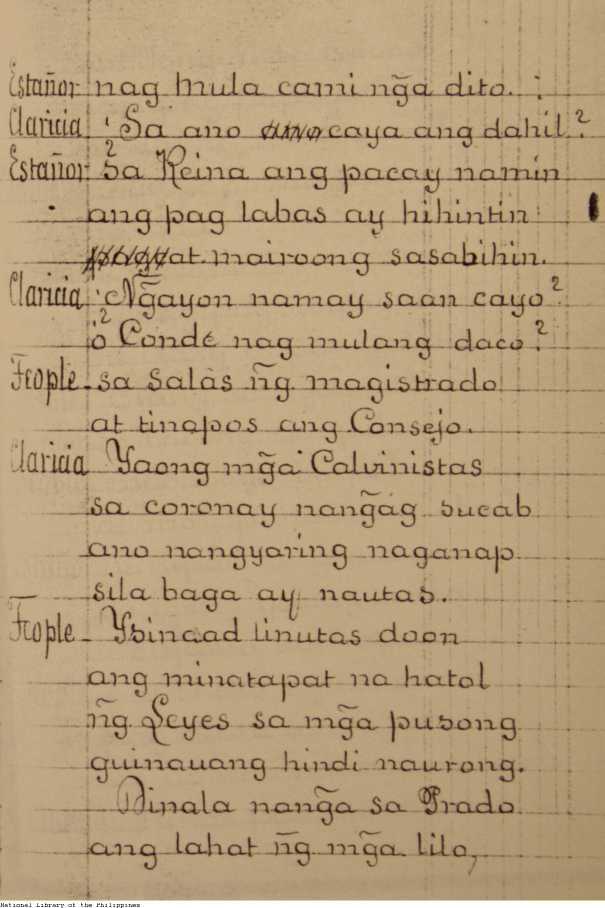 Estañor nag mula cami ng̃a dito.
Claricia ¿Sa ano caya ang dahil?
Estañor Sa Reina ang pacay namin
ang pag labas ay hihintin
at mairoong sasabihin.
Claricia ¿Ng̃ayon namay saan cayo?
¿ó Conde nag mulang daco?
Teople - sa Salas ñg magistrado
at tinapos ang Consejo.
Claricia Yaong mg̃a Calvinistas
sa coronay nang̃ag sucab
ano nangyaring naganap
sila baga ay nautas.
Teople - Ysinaad linutas doon
ang minatapat na hatol
ñg Leyes sa mg̃a pusong
guinauang hindi naurong.
Dinala nang̃a sa Prado
ang lahat ñg mg̃a lilo,
National Library of the Philippines